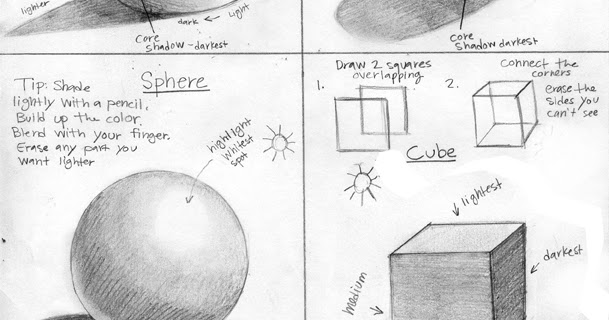 lighter
dark ← light
Core
Shadow-darkest
Core
Shadow darkest
Tip: Shade
lightly with a pencil.
Build up the color.
Blend with your finger.
Erase any part you
want lighter
Sphere
highlight
whitest
spot
Draw 2 squares
overlapping
1.
2.
Connect the
corners
erase the
sides you
can't see
Cube
lightest
darkest
medium